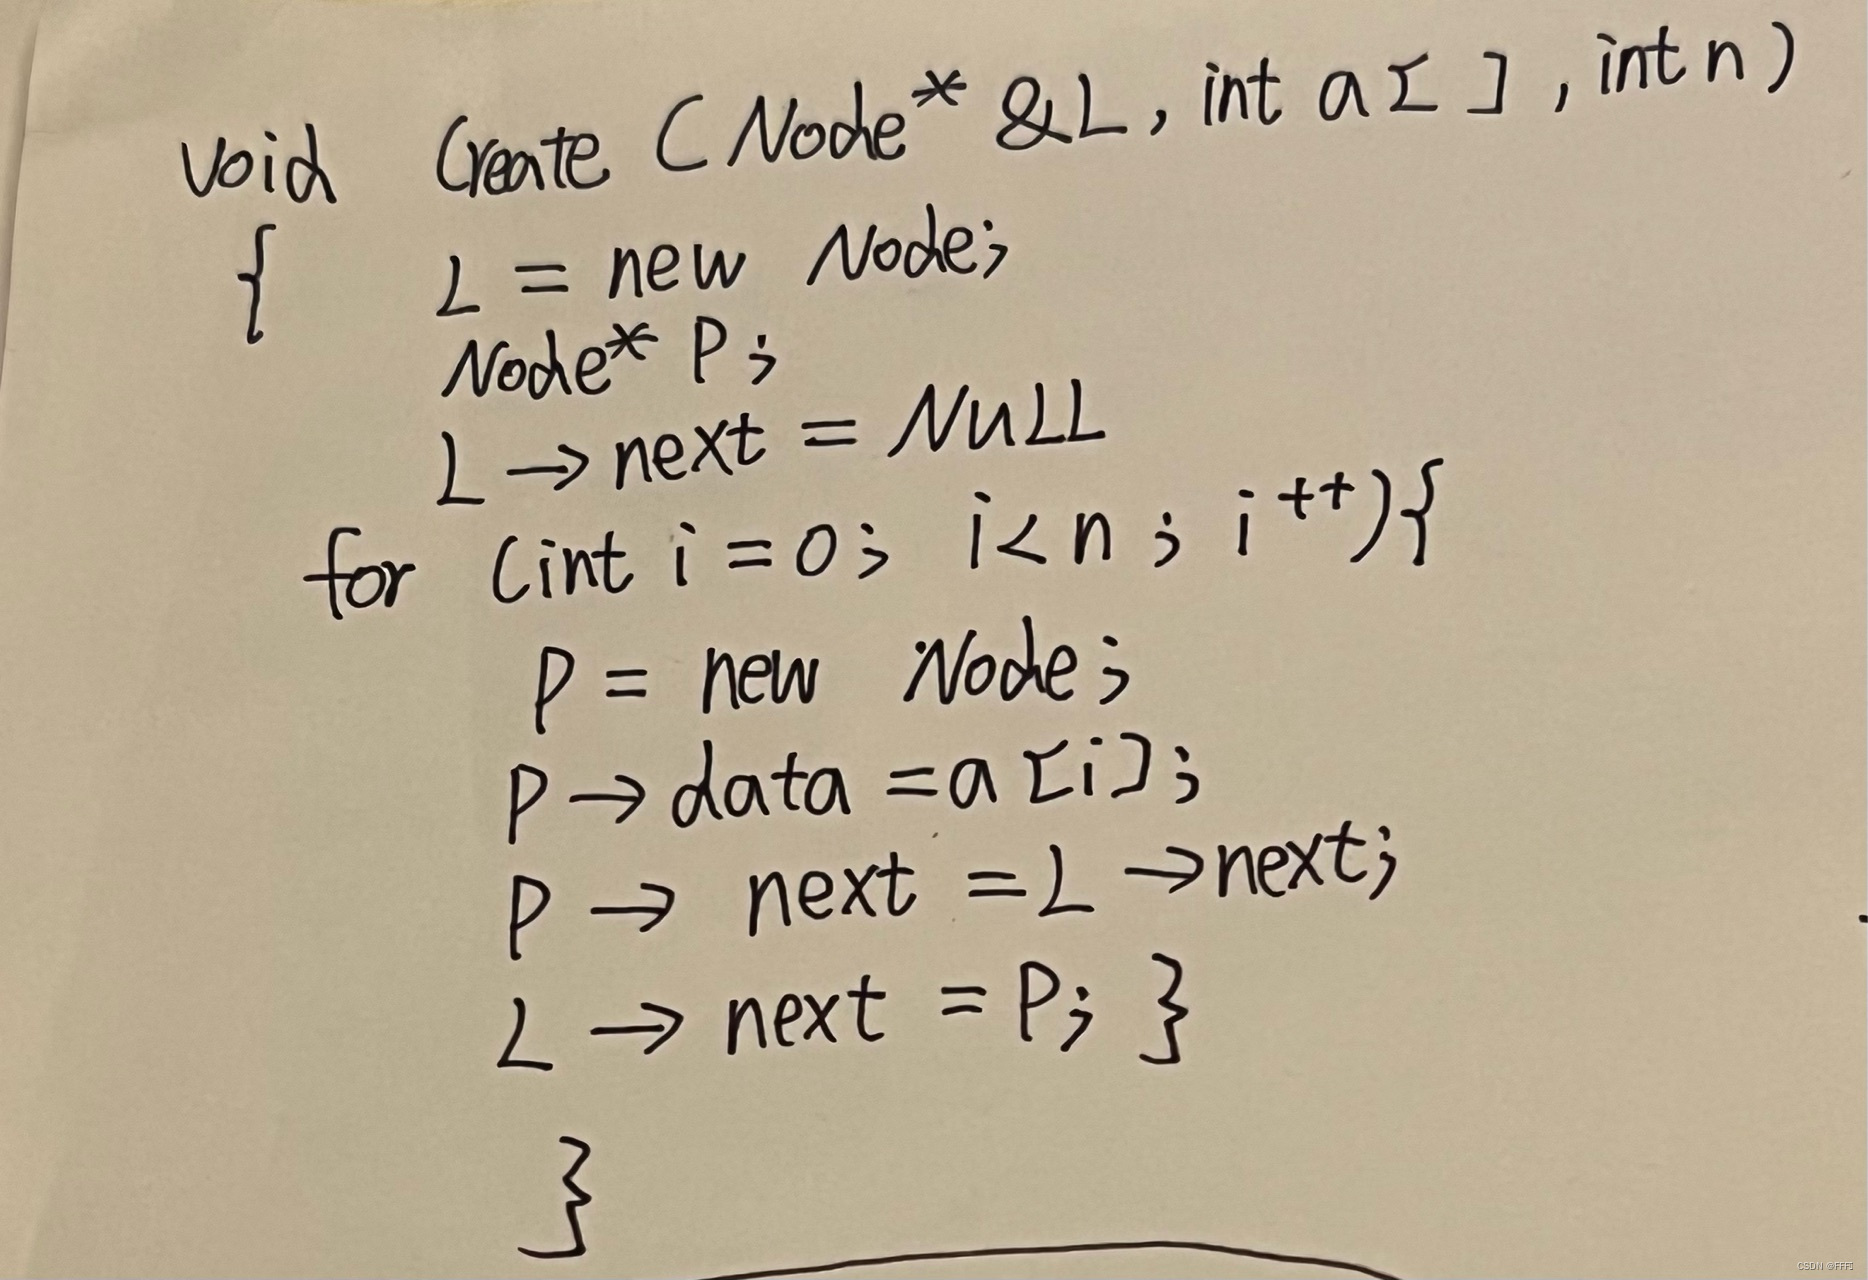 void Create (Node* &L, int a[ ], int n)
{ L = new Node;
Node* P;
L→next = NULL
for (int i = 0; i<n; i++){
P = new Node;
P→data = a[i];
P→ next = L→next;
L→ next = P; }
}
CSDN @FFFJ